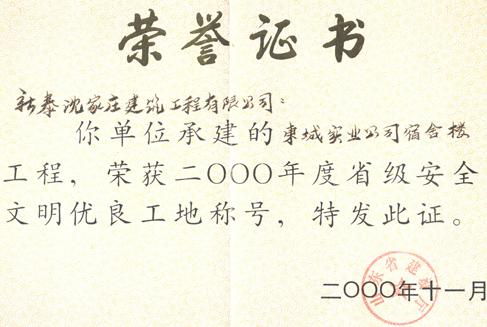 荣誉证书
新泰沈家庄建筑工程有限公司：
你单位承建的東城实业公司宿舍楼
工程，荣获二〇〇〇年度省级安全
文明优良工地称号，特发此证。
山东省建筑工
二〇〇〇年十一月